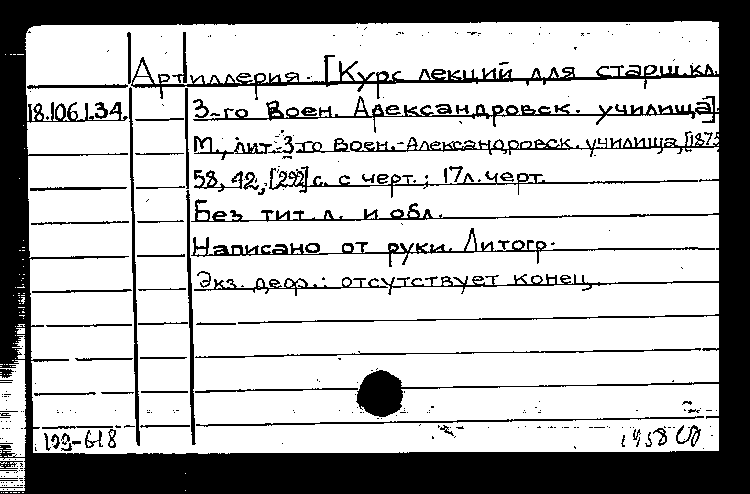 Артиллерия. [Курс лекций для старш. кл.
18.106.1.34. 3-го Воен. Александровск. училища].
М., лит. 3-го Воен.-Александровск. училища, [1875
58, 42, [292] с. с черт.; 17 л. черт.
Без тит. л. и обл.
Написано от руки. Литогр.
Экз. деф.: отсутствует конец.
199-618 1958